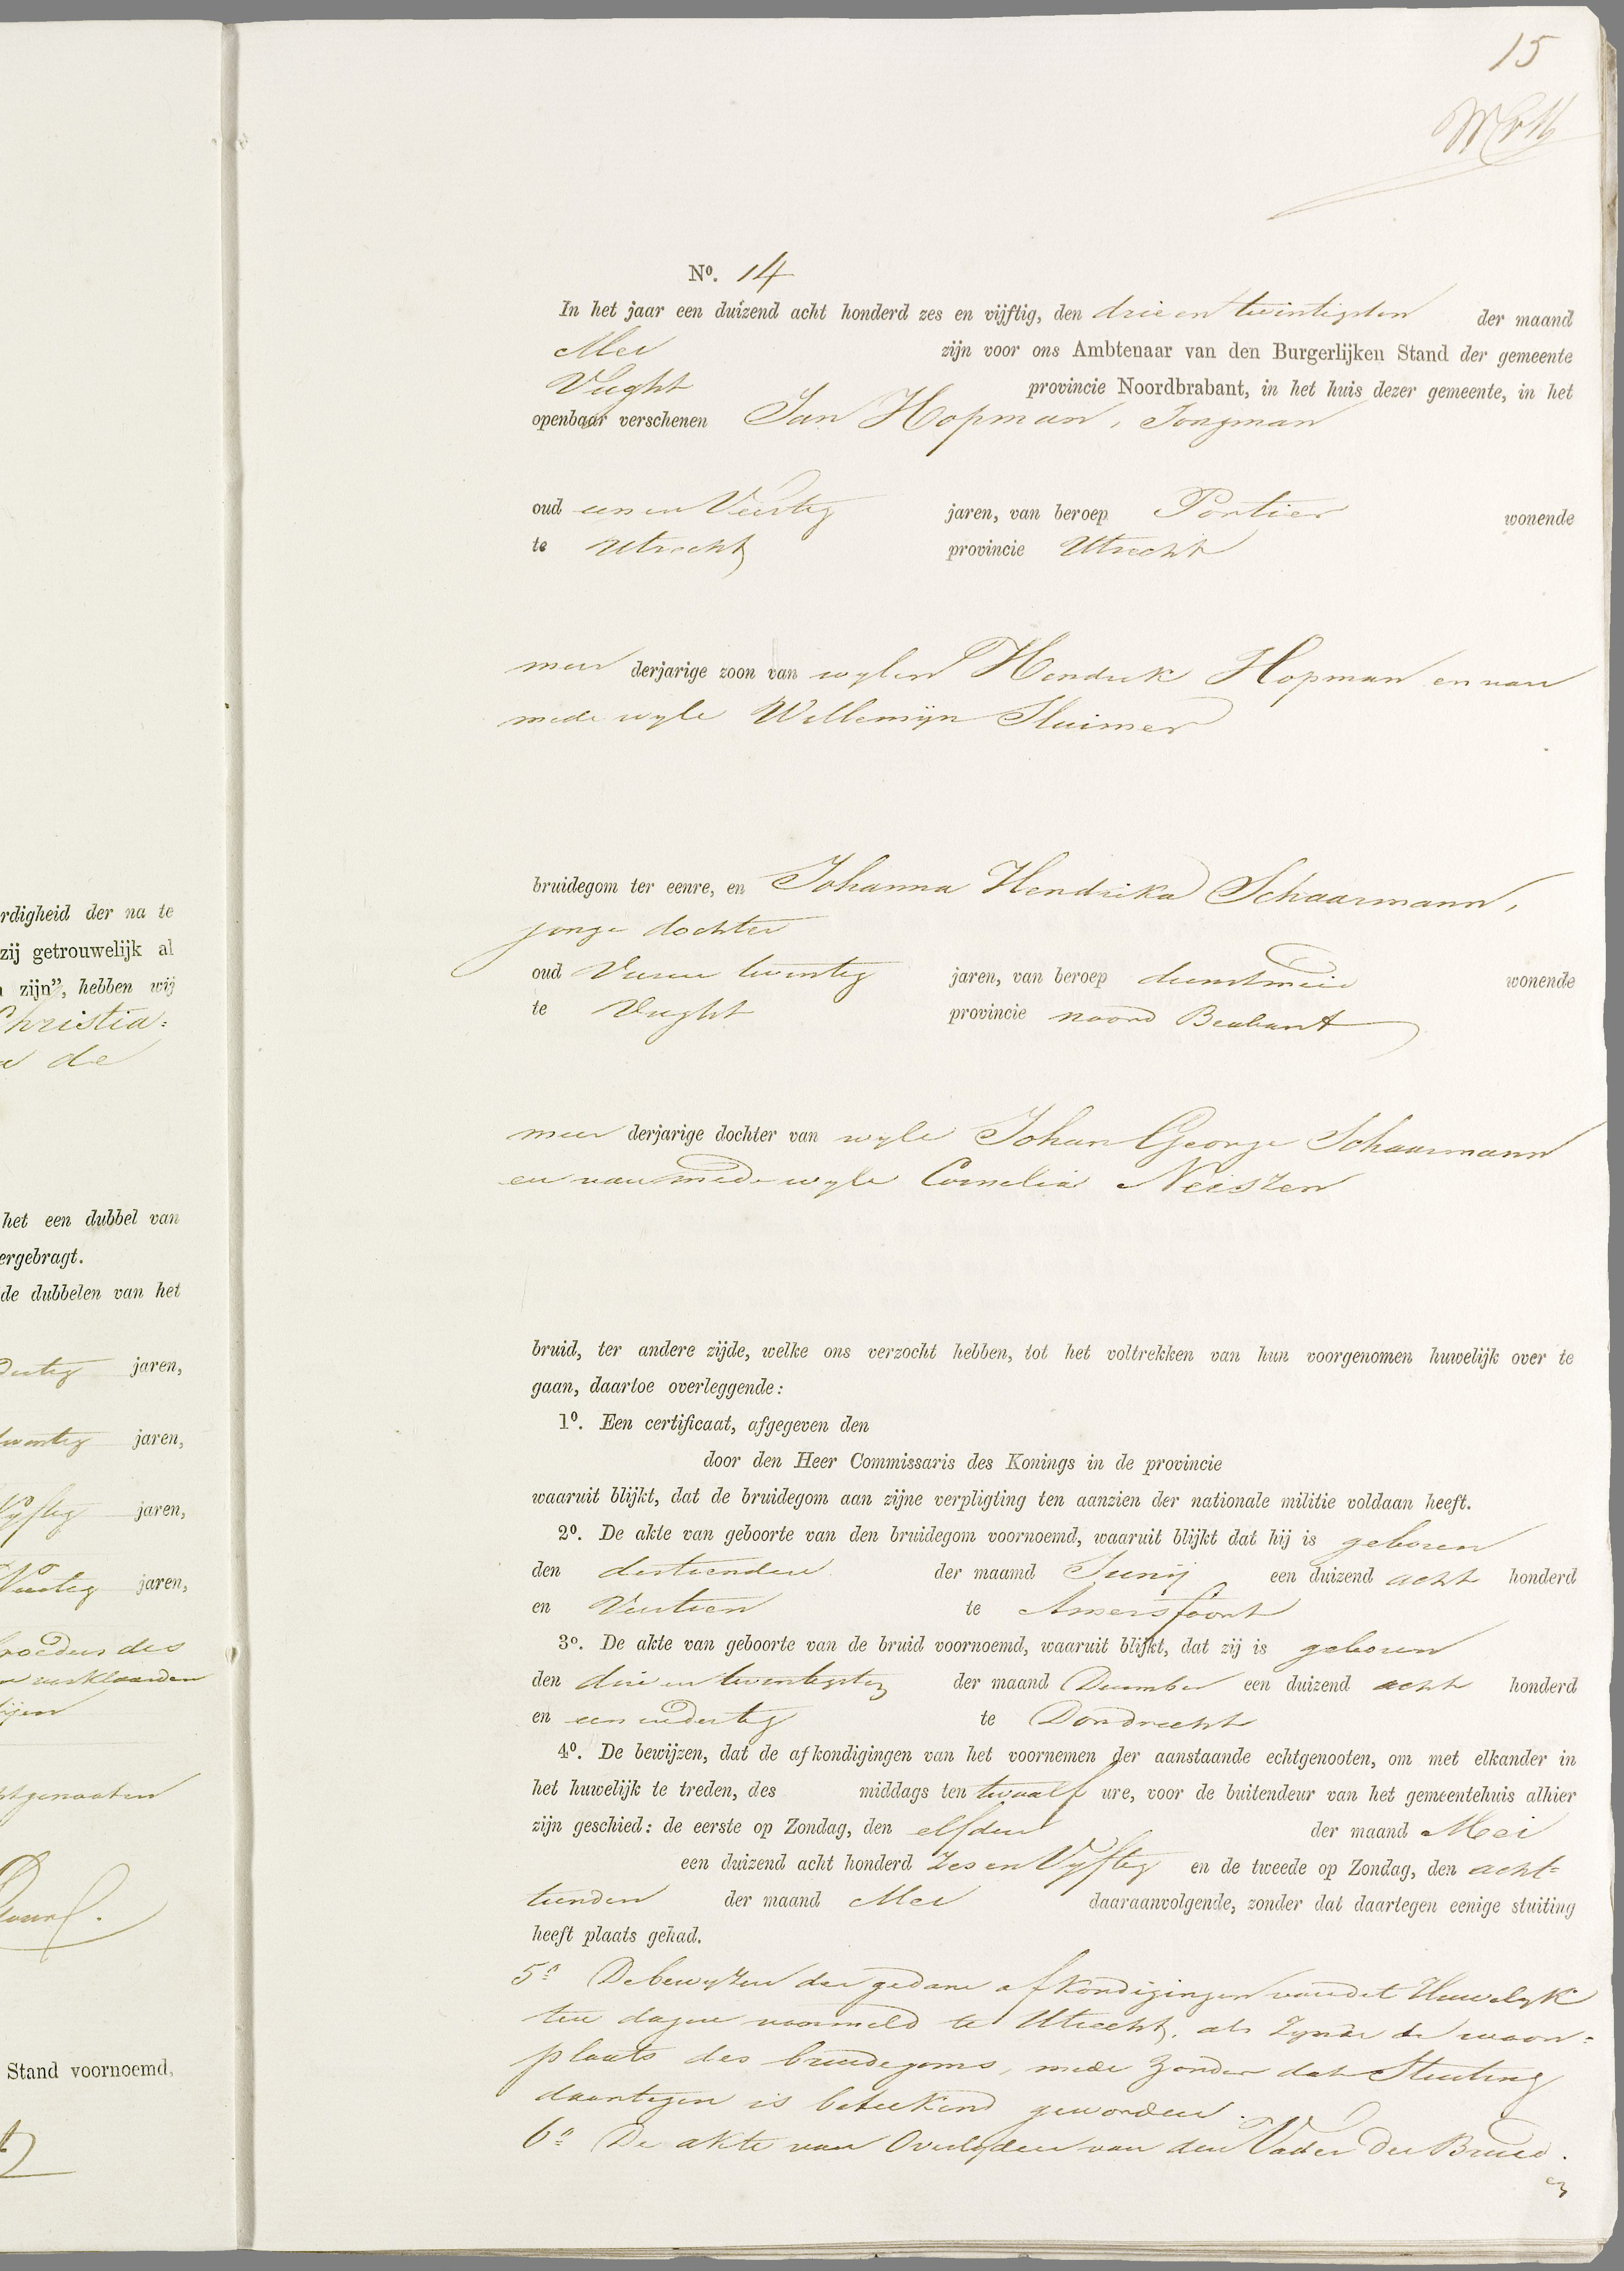 15
No. 14
In het jaar een duizend acht honderd zes en vijftig, den drie en twintigsten der maand
Mei zijn voor ons Ambtenaar van den Burgerlijken Stand der gemeente
Vught provincie Noordbrabant, in het huis dezer gemeente, in het
openbaar verschenen Jan Hopman, Jongman
oud een en Veertig jaren, van beroep Portier wonende
te Utrecht provincie Utrecht
meer derjarige zoon van wylen Hendrik Hopman en van
mede wyle Willemijn Sluimer
bruidegom ter eenre, en Johanna Hendrika Schaarmann,
jonge dochter
oud Vier en twintig jaren, van beroep dienstmeid wonende
te Vught provincie Noord Brabant
meer derjarige dochter van wyle Johan George Schaarmann
en van mede wyle Cornelia Neiszen
bruid, ter andere zijde, welke ons verzocht hebben, tot het voltrekken van hun voorgenomen huwelijk over te
gaan, daartoe overleggende:
1o. Een certificaat, afgegeven den
door den Heer Commissaris des Konings in de provincie
waaruit blijkt, dat de bruidegom aan zijne verpligting ten aanzien der nationale militie voldaan heeft.
2o. De akte van geboorte van den bruidegom voornoemd, waaruit blijkt dat hij is geboren
den dertienden der maamd Junij een duizend acht honderd
en Veertien te Amersfoort
3o. De akte van geboorte van de bruid voornoemd, waaruit blijkt, dat zij is geboren
den drie en twintigsten der maand December een duizend acht honderd
en een en dertig te Dordrecht
4o. De bewijzen, dat de afkondigingen van het voornemen der aanstaande echtgenooten, om met elkander in
het huwelijk te treden, des middags ten twaalf ure, voor de buitendeur van het gemeentehuis alhier
zijn geschied: de eerste op Zondag, den elfden der maand Mei
een duizend acht honderd zes en Vyftig en de tweede op Zondag, den acht=
tienden der maand Mei daaraanvolgende, zonder dat daartegen eenige stuiting
heeft plaats gehad.
5o De bewyzen der gedane afkondigingen van dit Huwelyk
ten dagen voormeld te Utrecht, als zynde de woon=
plaats des bruidegoms, mede zonder dat Stuiting
daartegen is beteekend geworden.
6o De akte van Overlyden van den Vader der Bruid.
en
rdigheid der na te
zij getrouwelijk al
zijn", hebben wij
Christia=
de
het een dubbel van
ergebragt.
de dubbelen van het
dertig jaren,
twintig jaren,
Vyftig jaren,
Veertig jaren,
broeders des
verklaarden
htgenooten
Stand voornoemd,